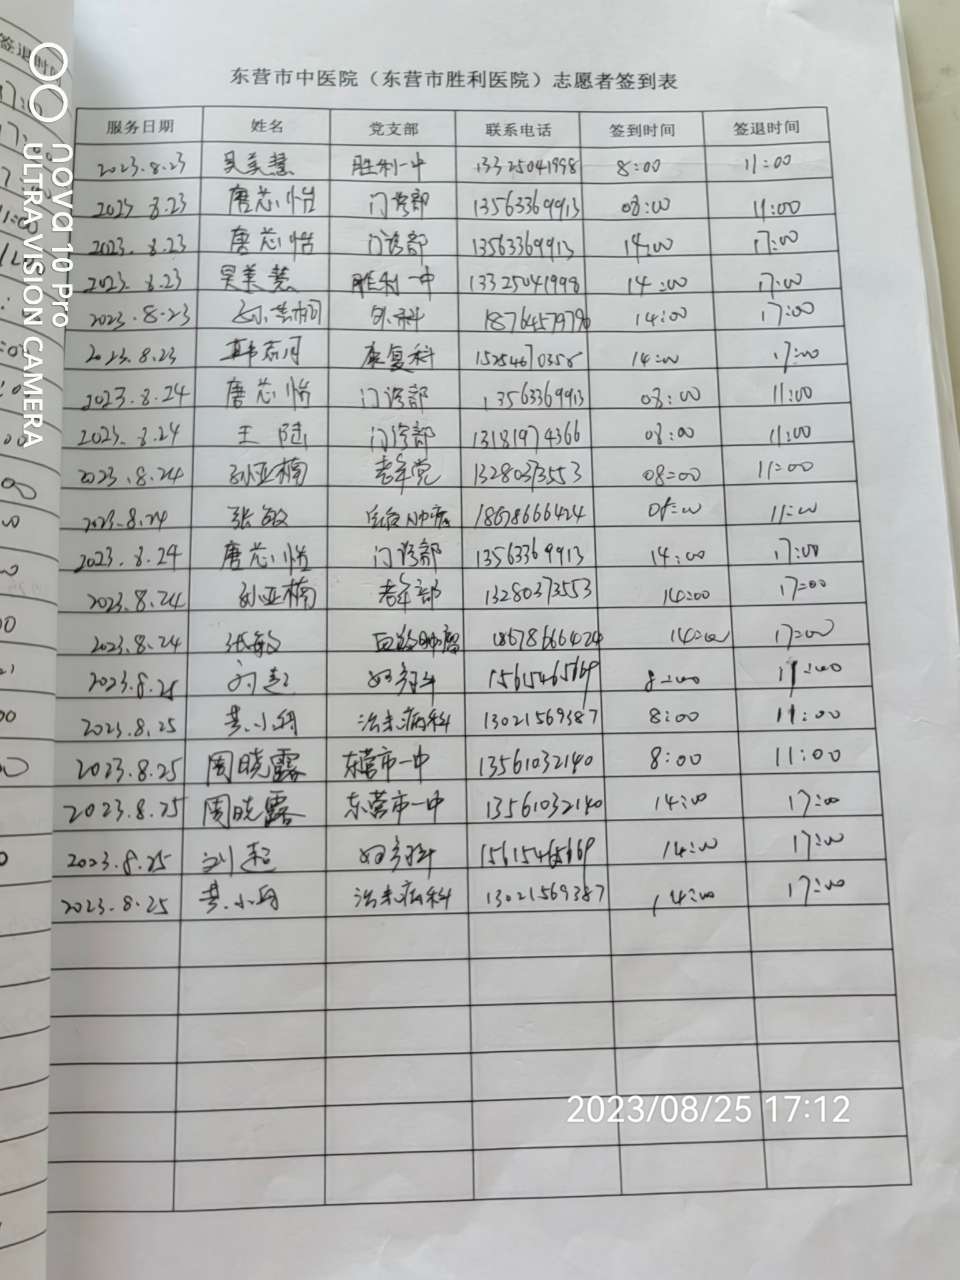 东营市中医院（东营市胜利医院）志愿者签到表
服务日期 姓名 党支部 联系电话 签到时间 签退时间
2023.8.23 吴美慧 胜利一中 13325041998 8:00 11:00
2023.8.23 唐芯怡 门诊部 13563369913 08:00 11:00
2023.8.23 唐芯怡 门诊部 13563369913 14:00 17:00
2023.8.23 吴美慧 胜利一中 13325041998 14:00 17:00
2023.8.23 外科 18764579796 14:00 17:00
2023.8.23 康复科 15254670356 14:00 17:00
2023.8.24 唐芯怡 门诊部 13563369913 08:00 11:00
2023.8.24 王陆 门诊部 13181974366 08:00 11:00
2023.8.24 孙亚楠 老年党 13280373553 08:00 11:00
2023.8.24 张敏 血液肿瘤 18678666424 08:00 11:00
2023.8.24 唐芯怡 门诊部 13563369913 14:00 17:00
2023.8.24 孙亚楠 老年部 13280373553 14:00 17:00
2023.8.24 张敏 血液肿瘤 18678666424 14:00 17:00
2023.8.25 刘超 妇科 15615465669 8:00 11:00
2023.8.25 黄小丹 治未病科 13021569387 8:00 11:00
2023.8.25 周晓露 东营市一中 13561032140 8:00 11:00
2023.8.25 周晓露 东营市一中 13561032140 14:00 17:00
2023.8.25 刘超 妇科 15615465669 14:00 17:00
2023.8.25 黄小丹 治未病科 13021569387 14:00 17:00
签退时间
nova 10 Pro
ULTRA VISION CAMERA
2023/08/25 17:12